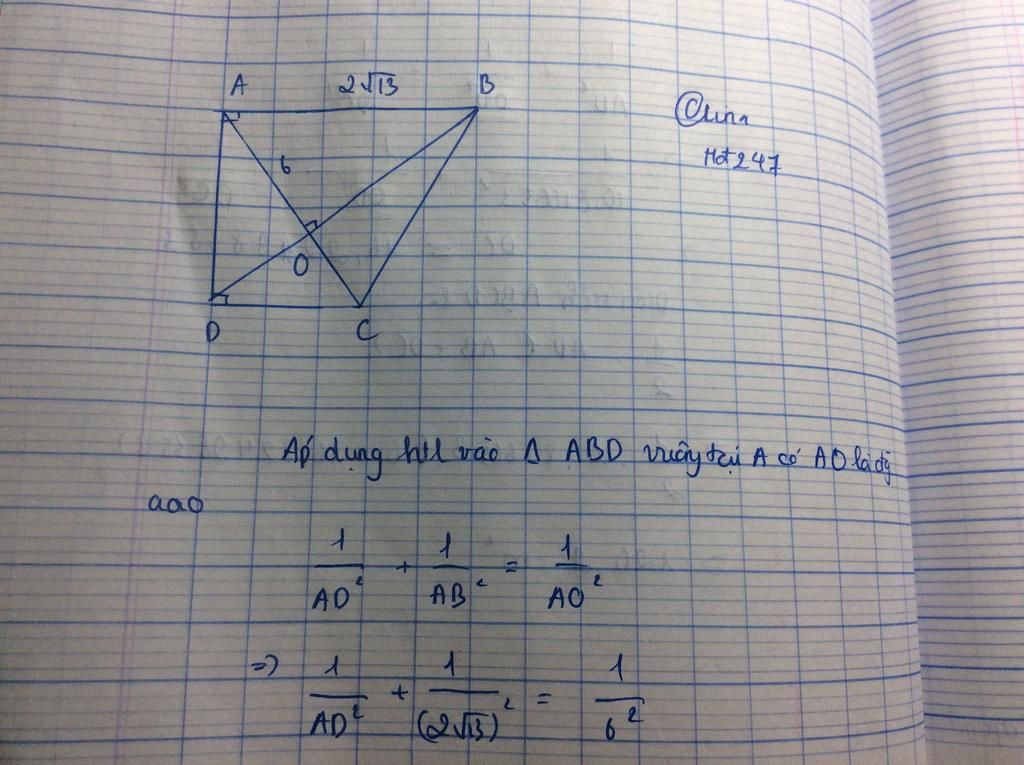 A 2√13 B
@Lina
Hđ247
6
O
D C
Áp dụng htl vào Δ ABD vuông tại A có AO là đg
cao
1/AD² + 1/AB² = 1/AO²
=> 1/AD² + 1/(2√13)² = 1/6²